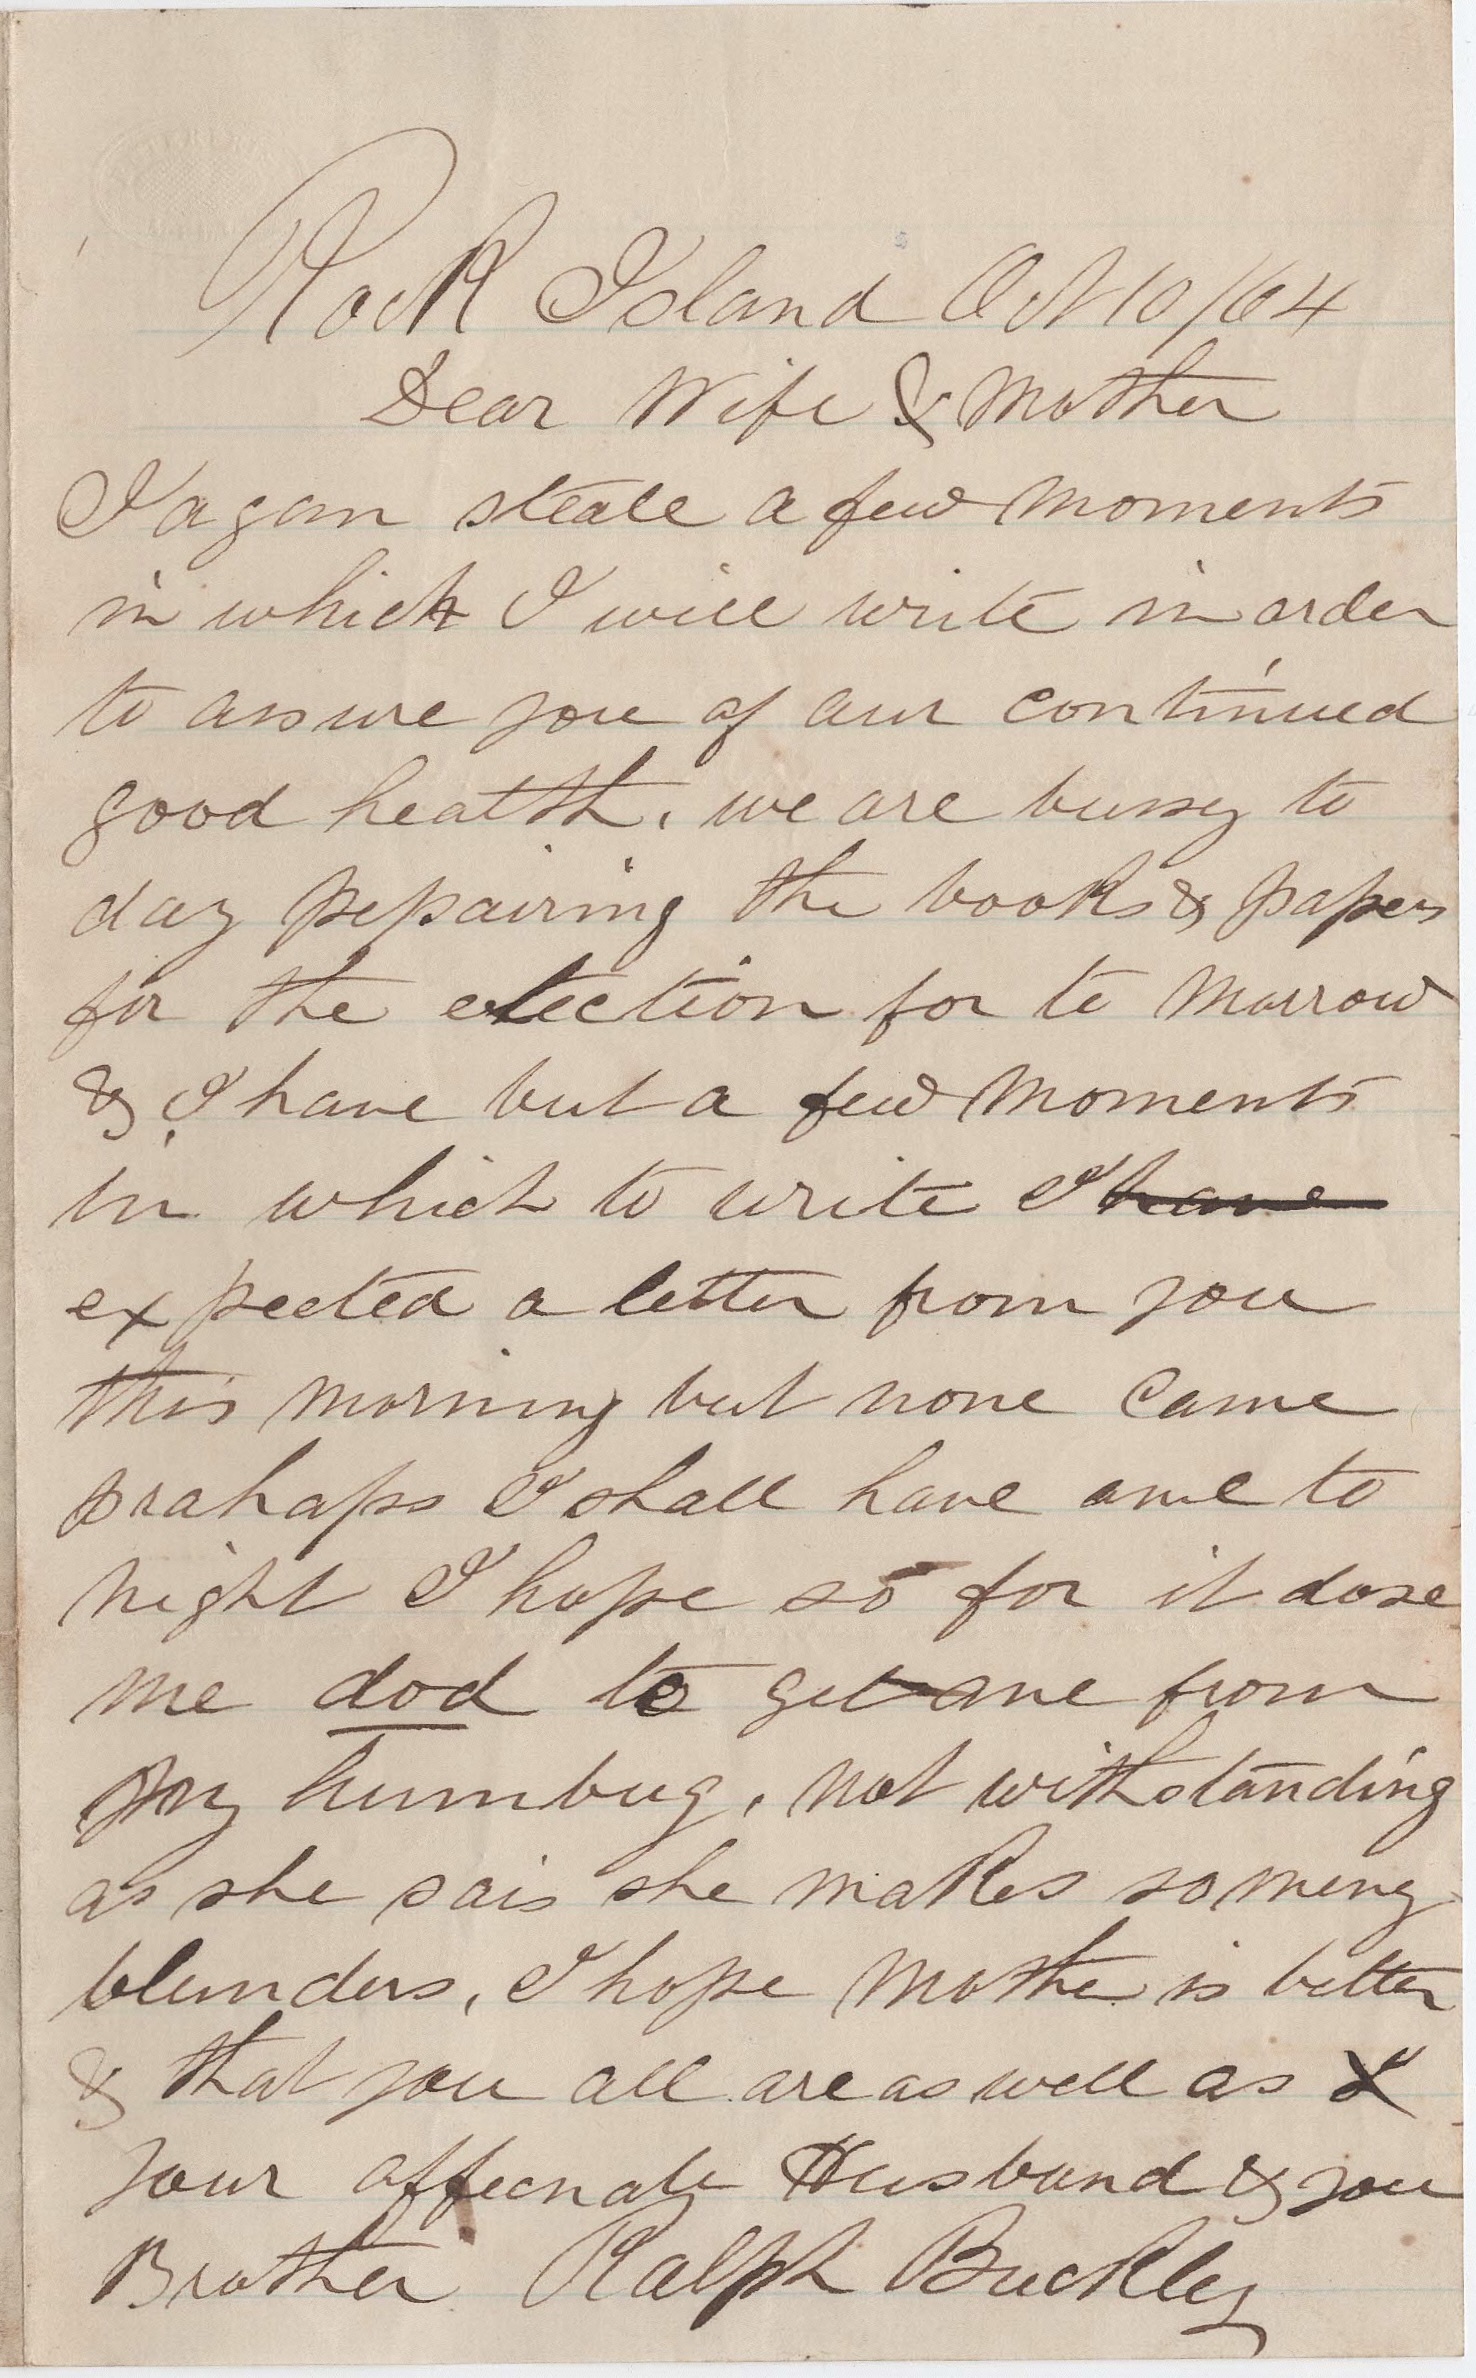 Rock Island Oct 10/64
Dear Wife & Mother
I agan steale a few moments
in which I will write in order
to assure you of our continued
good health. we are bussy to
day pepairing the books & papers
for the election for to morrow
& I have but a few moments
in which to write I have
expected a letter from you
this morning but none came
prahaps I shall have one to
night I hope so for it dose
me dod to get one from
my humbug. not withstanding
as she sais she makes so meny
blunders, I hope Mothe is better
& that you all are as well as I
Your affecnate Husband & you
Brother Ralph Buckley